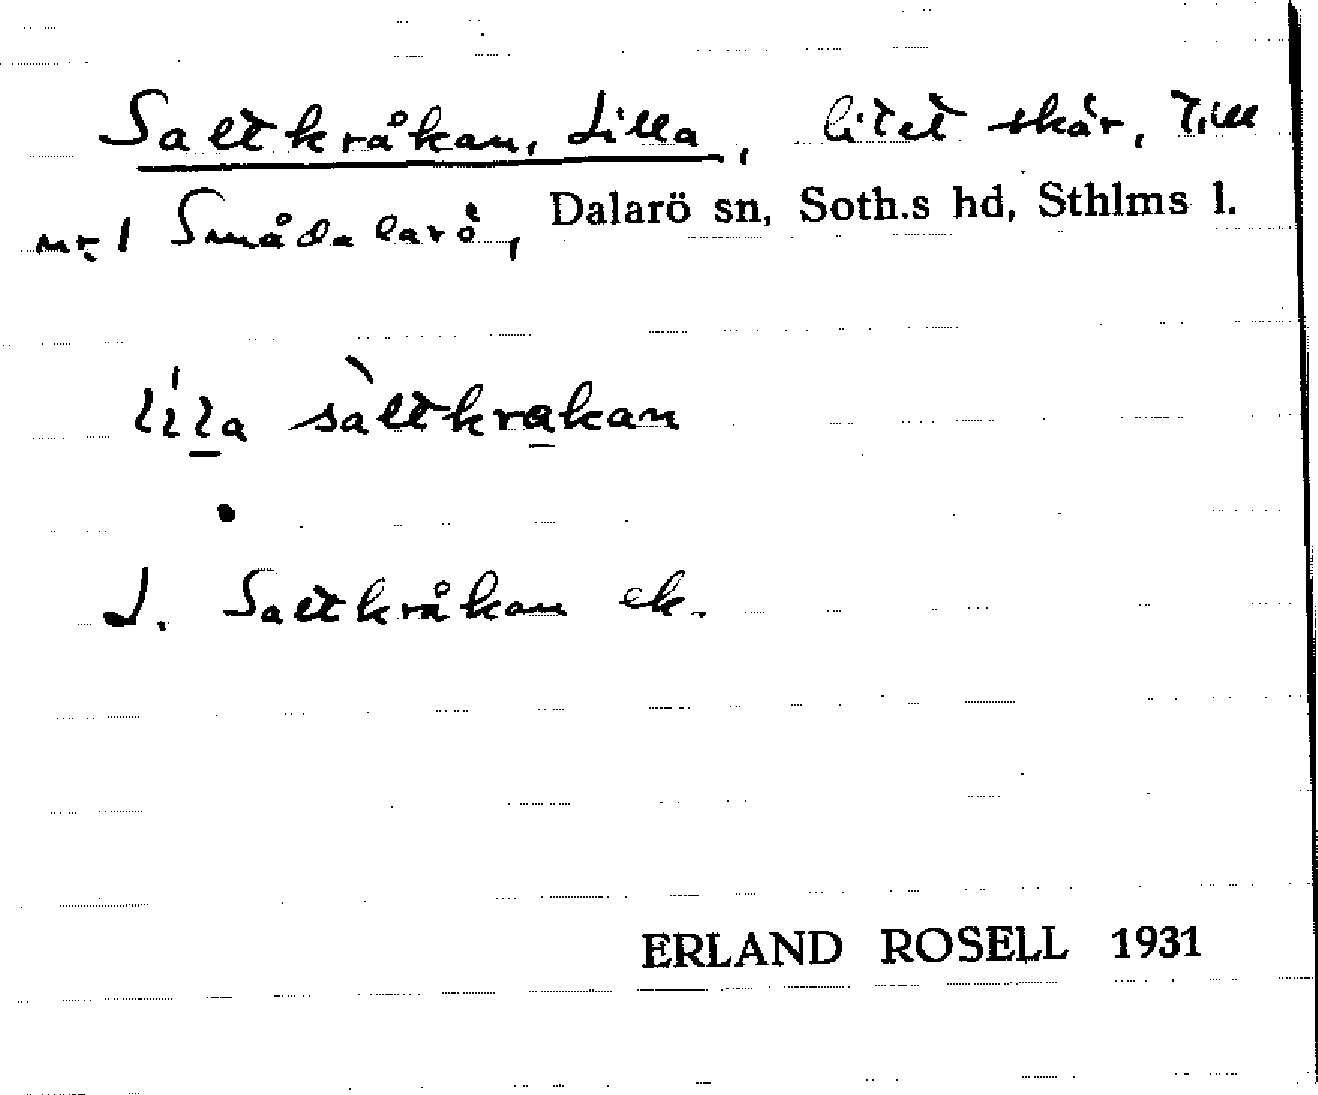 Saltkråkan, Lilla, litet skär, till
nr 1 Smådalarö, Dalarö sn, Soth.s hd, Sthlms l.
líl̲a sàltkra̲kan
L. Saltkråkan ek.
ERLAND ROSELL 1931